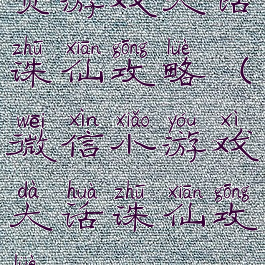 游戏大话
zhū xiān gōng lüè
诛仙攻略（
wēi xìn xiǎo yóu xì
微信小游戏
dà huà zhū xiān gōng
大话诛仙攻
lüè